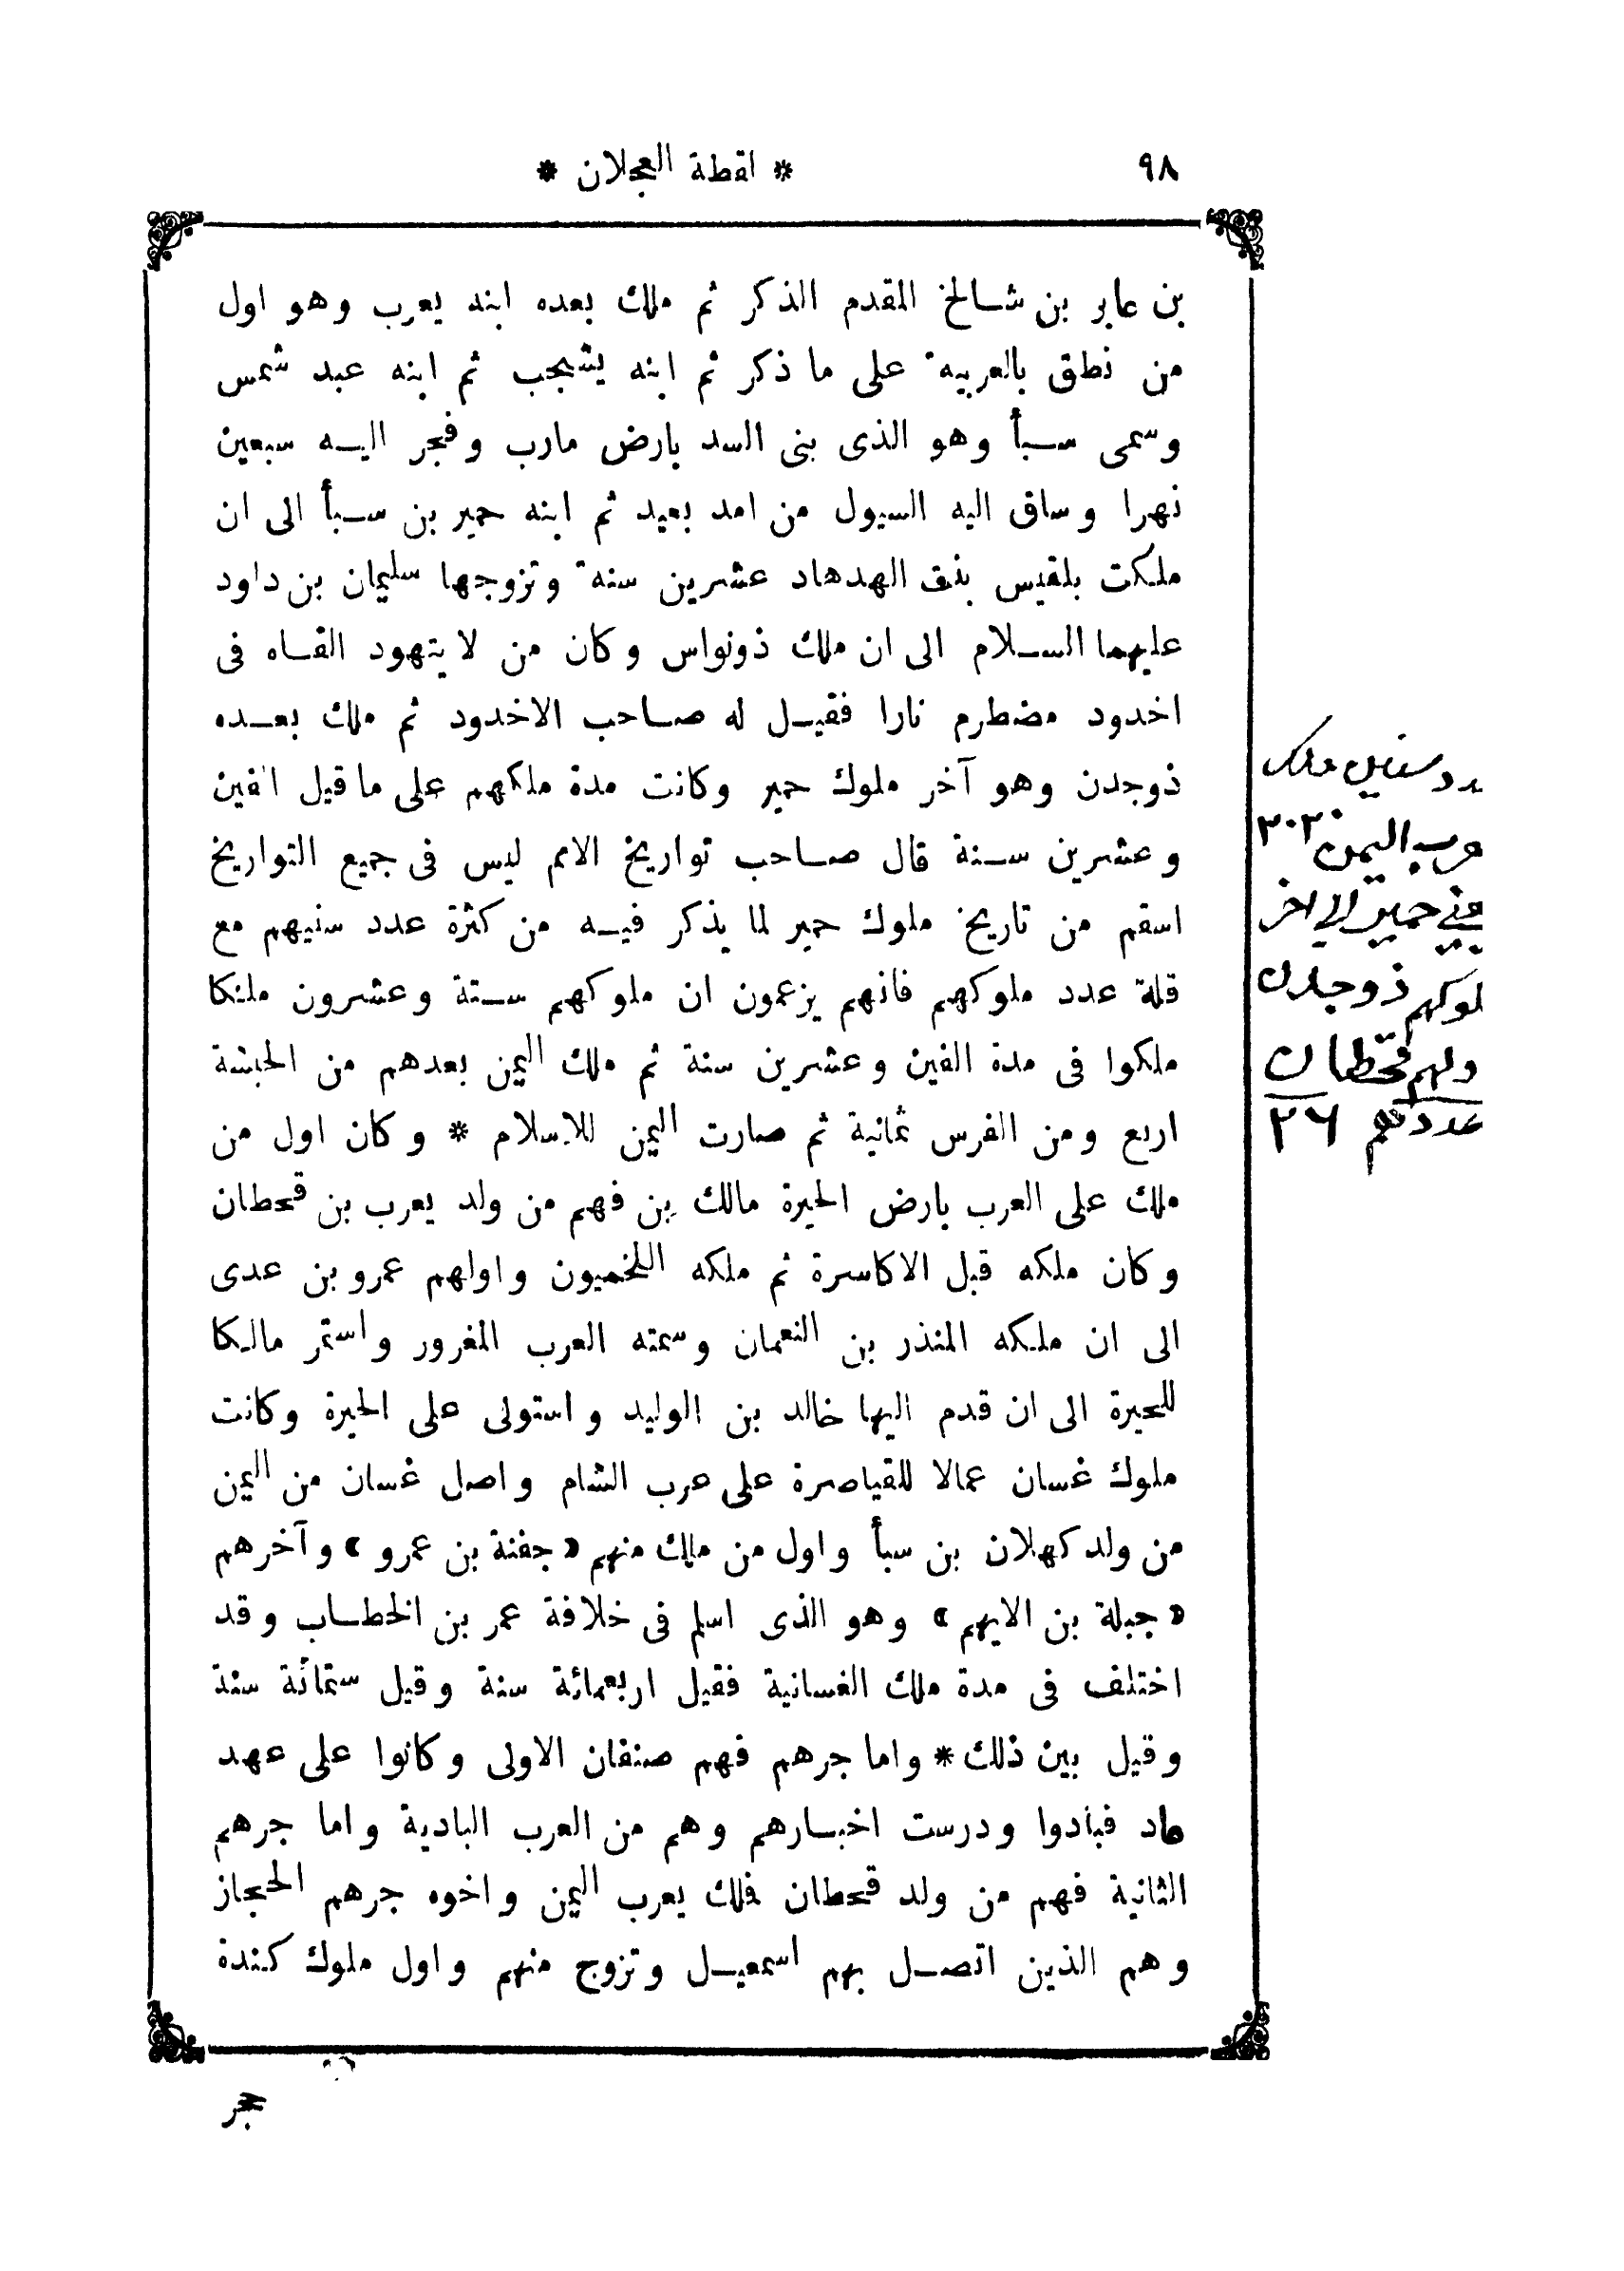 ٩٨
* لقطة العجلان *
بن عابر بن شالخ المقدم الذكر ثم ملك بعده ابنه يعرب وهو اول
من نطق بالعربية على ما ذكر ثم ابنه يشجب ثم ابنه عبد شمس
وسمى سبأ وهو الذى بنى السد بارض مارب وفجر اليه سبعين
نهرا وساق اليه السيول من امد بعيد ثم ابنه حمير بن سبأ الى ان
ملكت بلقيس بنت الهدهاد عشرين سنة وتزوجها سليمان بن داود
عليهما السلام الى ان ملك ذونواس وكان من لا يتهود القاه فى
اخدود مضطرم نارا فقيل له صاحب الاخدود ثم ملك بعده
ذوجدن وهو آخر ملوك حمير وكانت مدة ملكهم على ما قيل الفين
وعشرين سنة قال صاحب تواريخ الامم ليس فى جميع التواريخ
اسقم من تاريخ ملوك حمير لما يذكر فيه من كثرة عدد سنيهم مع
قلة عدد ملوكهم فانهم يزعمون ان ملوكهم ستة وعشرون ملكا
ملكوا فى مدة الفين وعشرين سنة ثم ملك اليمن بعدهم من الحبشة
اربع ومن الفرس ثمانية ثم صارت اليمن للاسلام * وكان اول من
ملك على العرب بارض الحيرة مالك بن فهم من ولد يعرب بن قحطان
وكان ملكه قبل الاكاسرة ثم ملكه اللخميون واولهم عمرو بن عدى
الى ان ملكه المنذر بن النعمان وسمته العرب المغرور واستمر مالكا
للحيرة الى ان قدم اليها خالد بن الوليد واستولى على الحيرة وكانت
ملوك غسان عمالا للقياصرة على عرب الشام واصل غسان من اليمن
من ولد كهلان بن سبأ واول من ملك منهم « جفنة بن عمرو » وآخرهم
« جبلة بن الايهم » وهو الذى اسلم فى خلافة عمر بن الخطاب وقد
اختلف فى مدة ملك الغسانية فقيل اربعمائة سنة وقيل ستمائة سنة
وقيل بين ذلك * واما جرهم فهم صنفان الاولى وكانوا على عهد
عاد فبادوا ودرست اخبارهم وهم من العرب البادية واما جرهم
الثانية فهم من ولد قحطان فلك يعرب اليمن واخوه جرهم الحجاز
وهم الذين اتصل بهم اسمعيل وتزوج منهم واول ملوك كندة
حجر
ملك
عرب اليمن
حمير الاخر
ذو جدن
ولهم قحطان
عددهم ٢٦